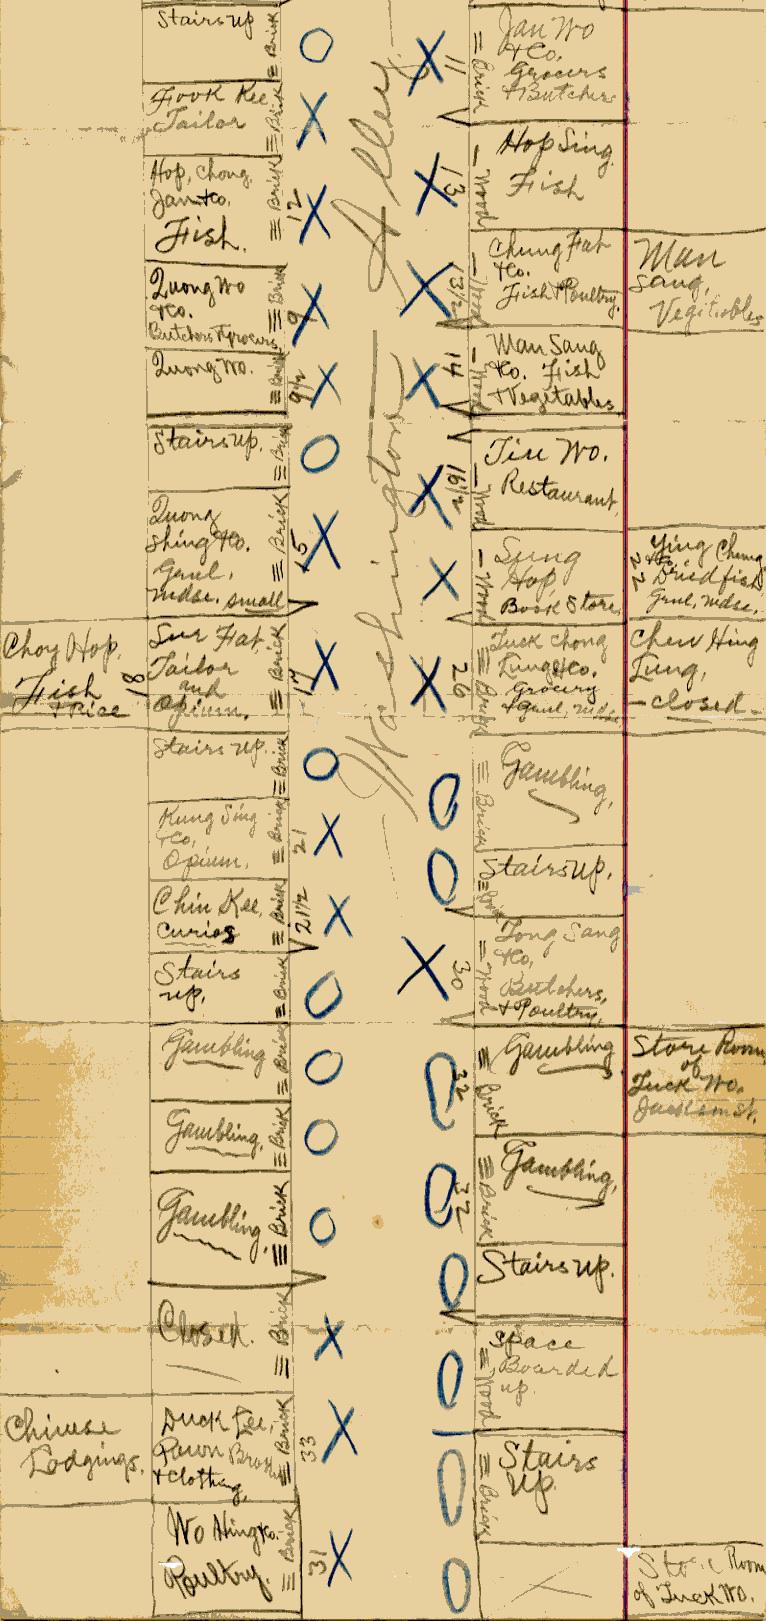 Stairs up
≡ Brick
Fook Kee
Tailor
≡ Brick
Hop, Chong,
Jan & Co.
Fish.
≡ Brick
12
Quong Wo
& Co.
Butchers & grocers
≡ Brick
9
Quong Wo.
≡ Brick
9 1/2
Stairs up.
≡ Brick
Quong
Shing & Co.
Genl.
Mdse. small
≡ Brick
15
Choy Hop.
Fish
& Rice
18
Sur Fat.
Tailor
and
Opium.
≡ Brick
17
Stairs up.
≡ Brick
Kung Sing
& Co,
Opium.
≡ Brick
21
Chin Kee,
Curios
≡ Brick
21 1/2
Stairs
up.
≡ Brick
Gambling
≡ Brick
Gambling,
≡ Brick
Gambling,
≡ Brick
Closed.
≡ Brick
Chinese
Lodgings.
Duck Lee,
Pawn Broker
& Clothing,
≡ Brick
33
Wo Hing & Co.
Poultry.
≡ Brick
31
Washington Alley
Jan Wo
& Co.
Grocers
& Butchers
11
≡ Brick
Hop Sing
Fish
13
- Wood
Chung Fat
& Co.
Fish & Poultry.
13 1/2
- Wood
Man
Sang,
Vegitables
Man Sang
& Co. Fish
& Vegetables
14
- Wood
Tin Wo.
Restaurant,
16 1/2
- Wood
Sung
Hop,
Book Store
- Wood
Ying Chung
& Co.
Dried fish,
Genl, mdse.
22
Luck Chong
Lung & Co.
Grocery
& Genl, mdse,
26
≡ Brick
Chew Hing
Lung,
- Closed -
Gambling,
≡ Brick
Stairs up.
≡ Brick
Tong Sang
& Co,
Butchers,
& Poultry,
30
= Wood
Gambling,
32
≡ Brick
Store Room
of
Luck Wo.
Jackson st.
Gambling,
32
≡ Brick
Stairs up.
Space
Boarded
up.
= Wood
Stairs
Up.
≡ Brick
Store Room
of Luck Wo.